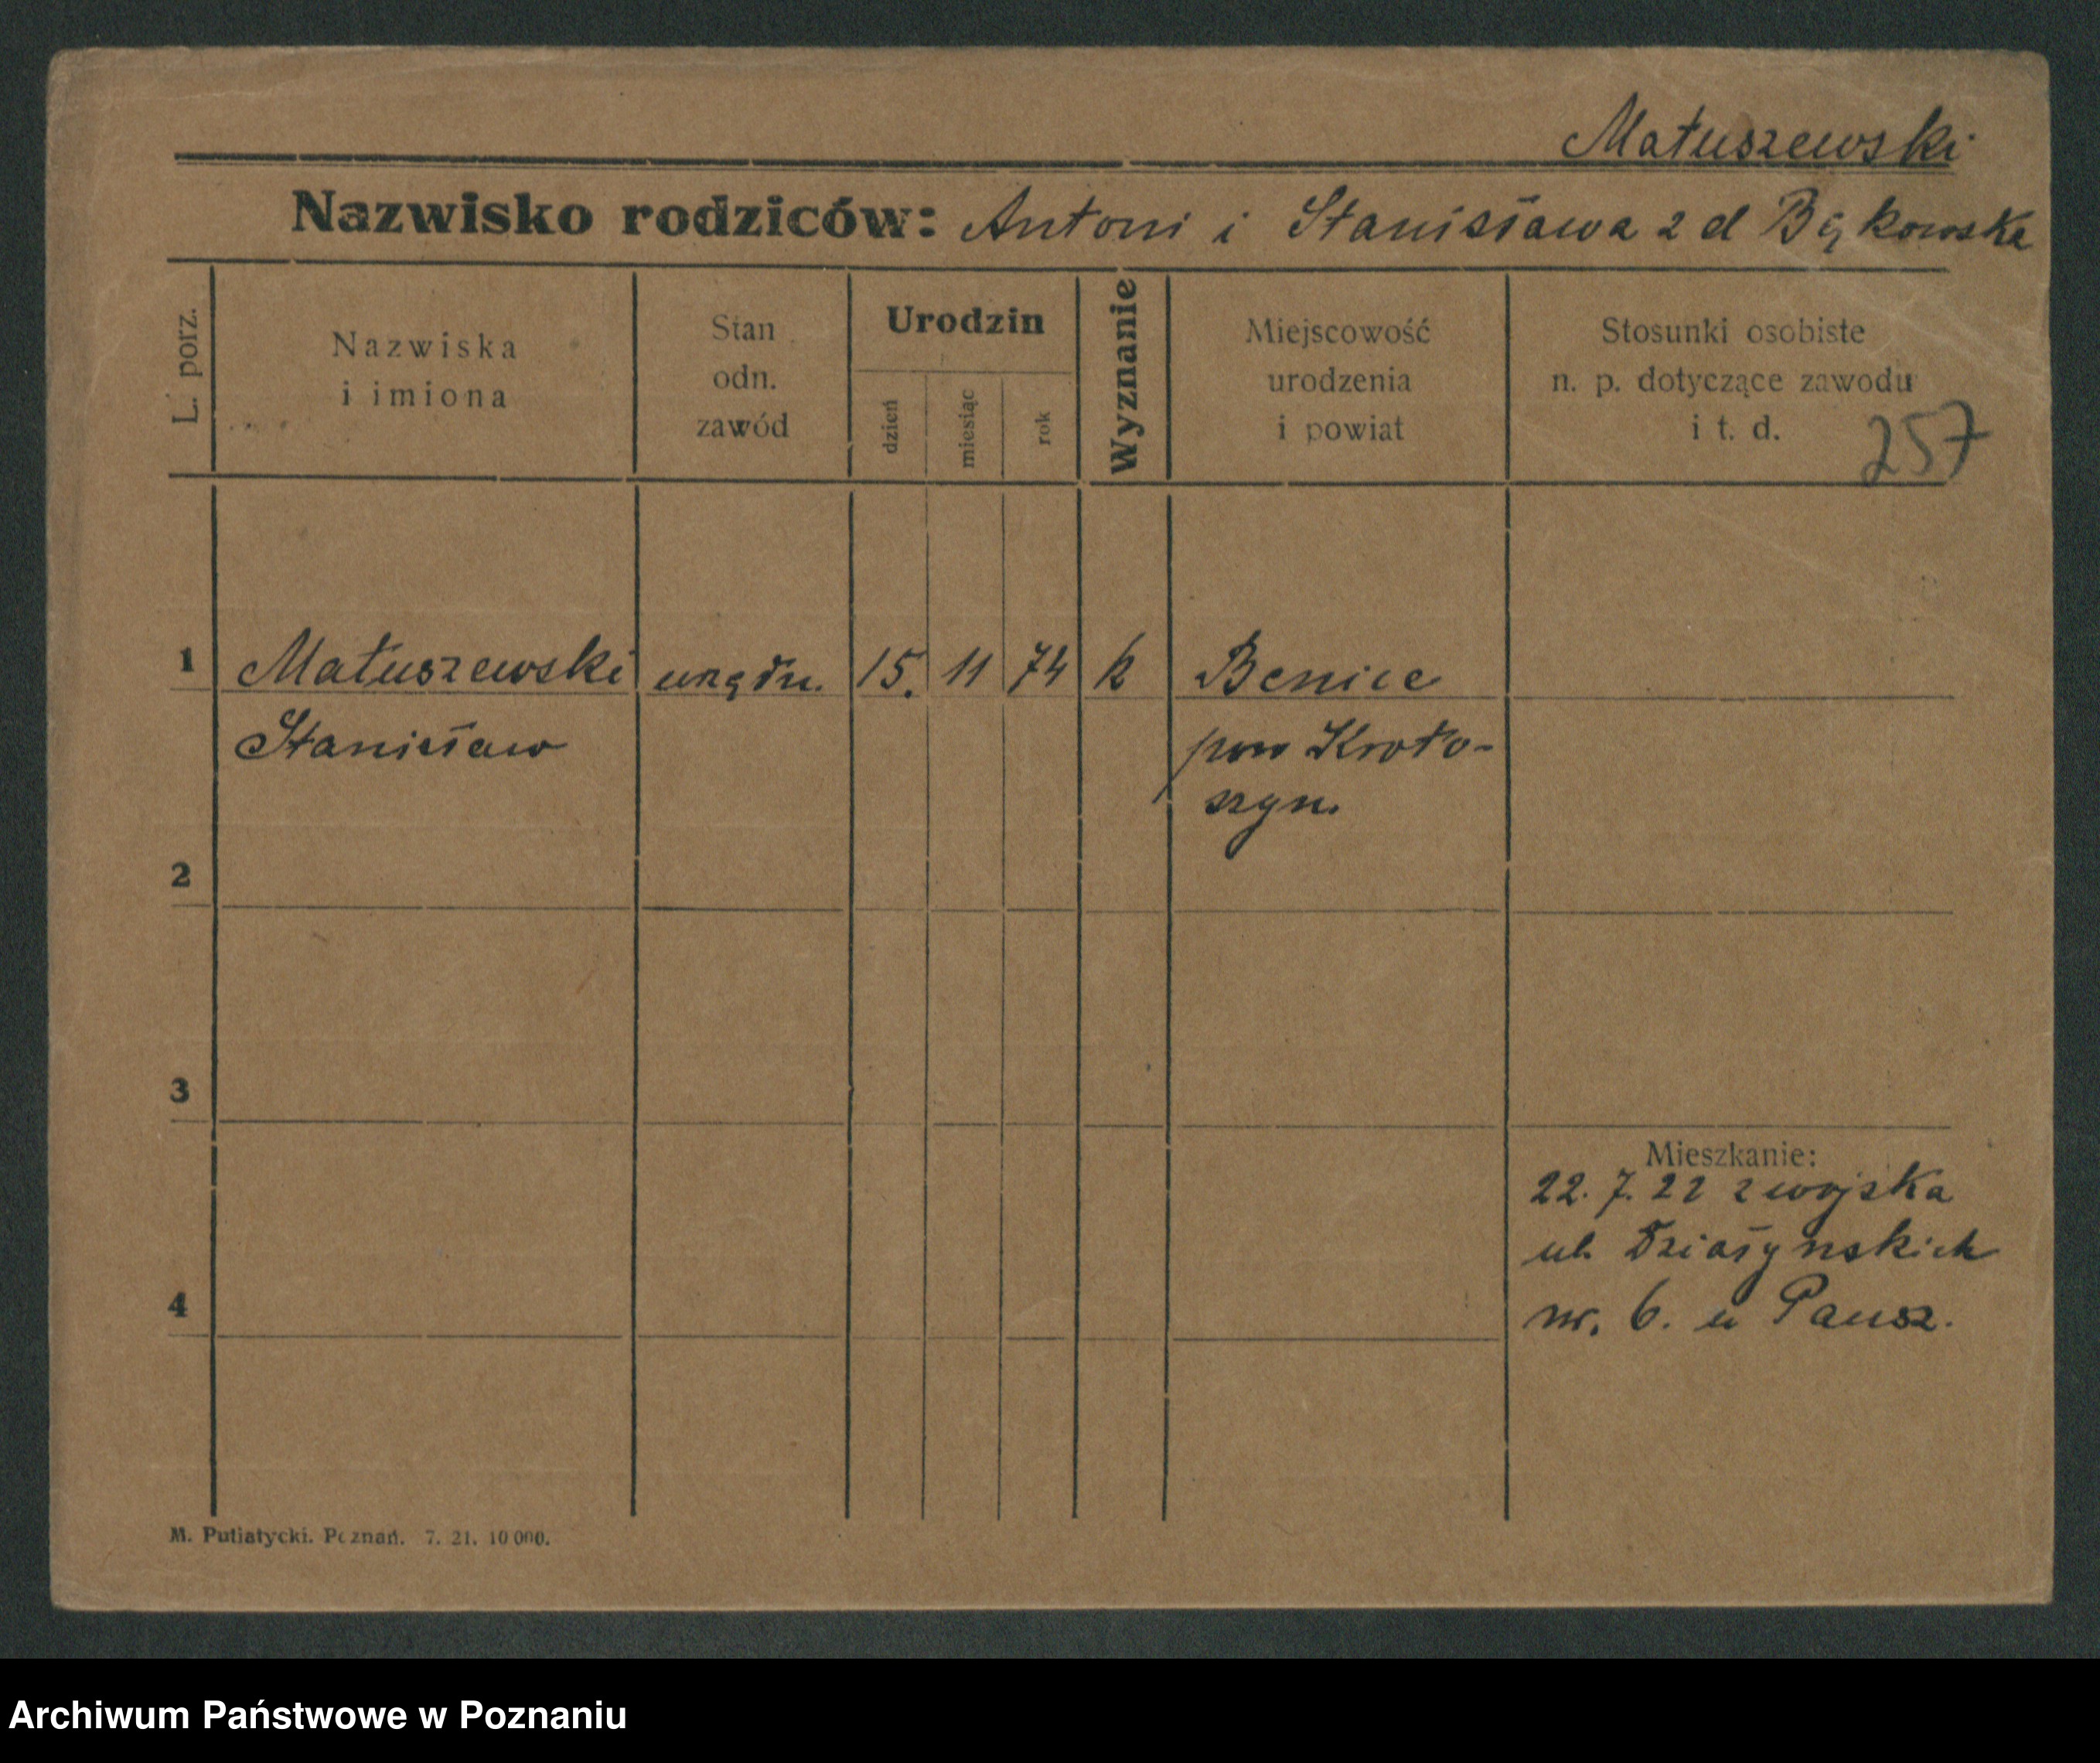 Matuszewski
Nazwisko rodziców: Antoni i Stanisława z d Bąkowska
L. porz.
Nazwiska
i imiona
Stan
odn.
zawód
Urodzin
dzień
miesiąc
rok
Wyznanie
Miejscowość
urodzenia
i powiat
Stosunki osobiste
n. p. dotyczące zawodu
i t. d.
257
1 Matuszewski urzędn. 15. 11 74 k Benice
Stanisław pow Kroto-
szyn.
2
3
Mieszkanie:
22. 7. 22 z wojska
ul. Działynskich
4
nr. 6. u Pausz.
M. Putiatycki. Poznań. 7. 21. 10 000.
Archiwum Państwowe w Poznaniu